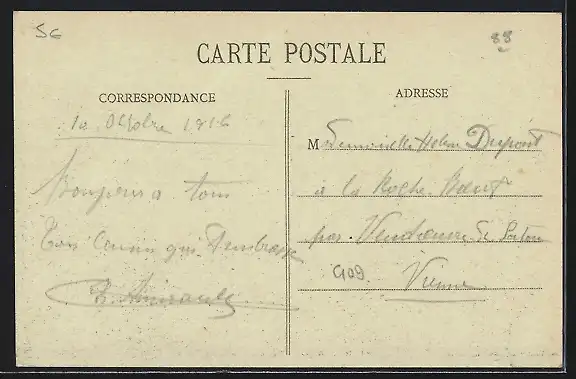 56
88
CARTE POSTALE
CORRESPONDANCE
10 Octobre 1916
Bonjour a tous
Ton Cousin qui t'embrasse
Ch.
ADRESSE
Mademoiselle Helene Dupont
à la Roche
par Vendeuvre du Poitou
909
Vienne